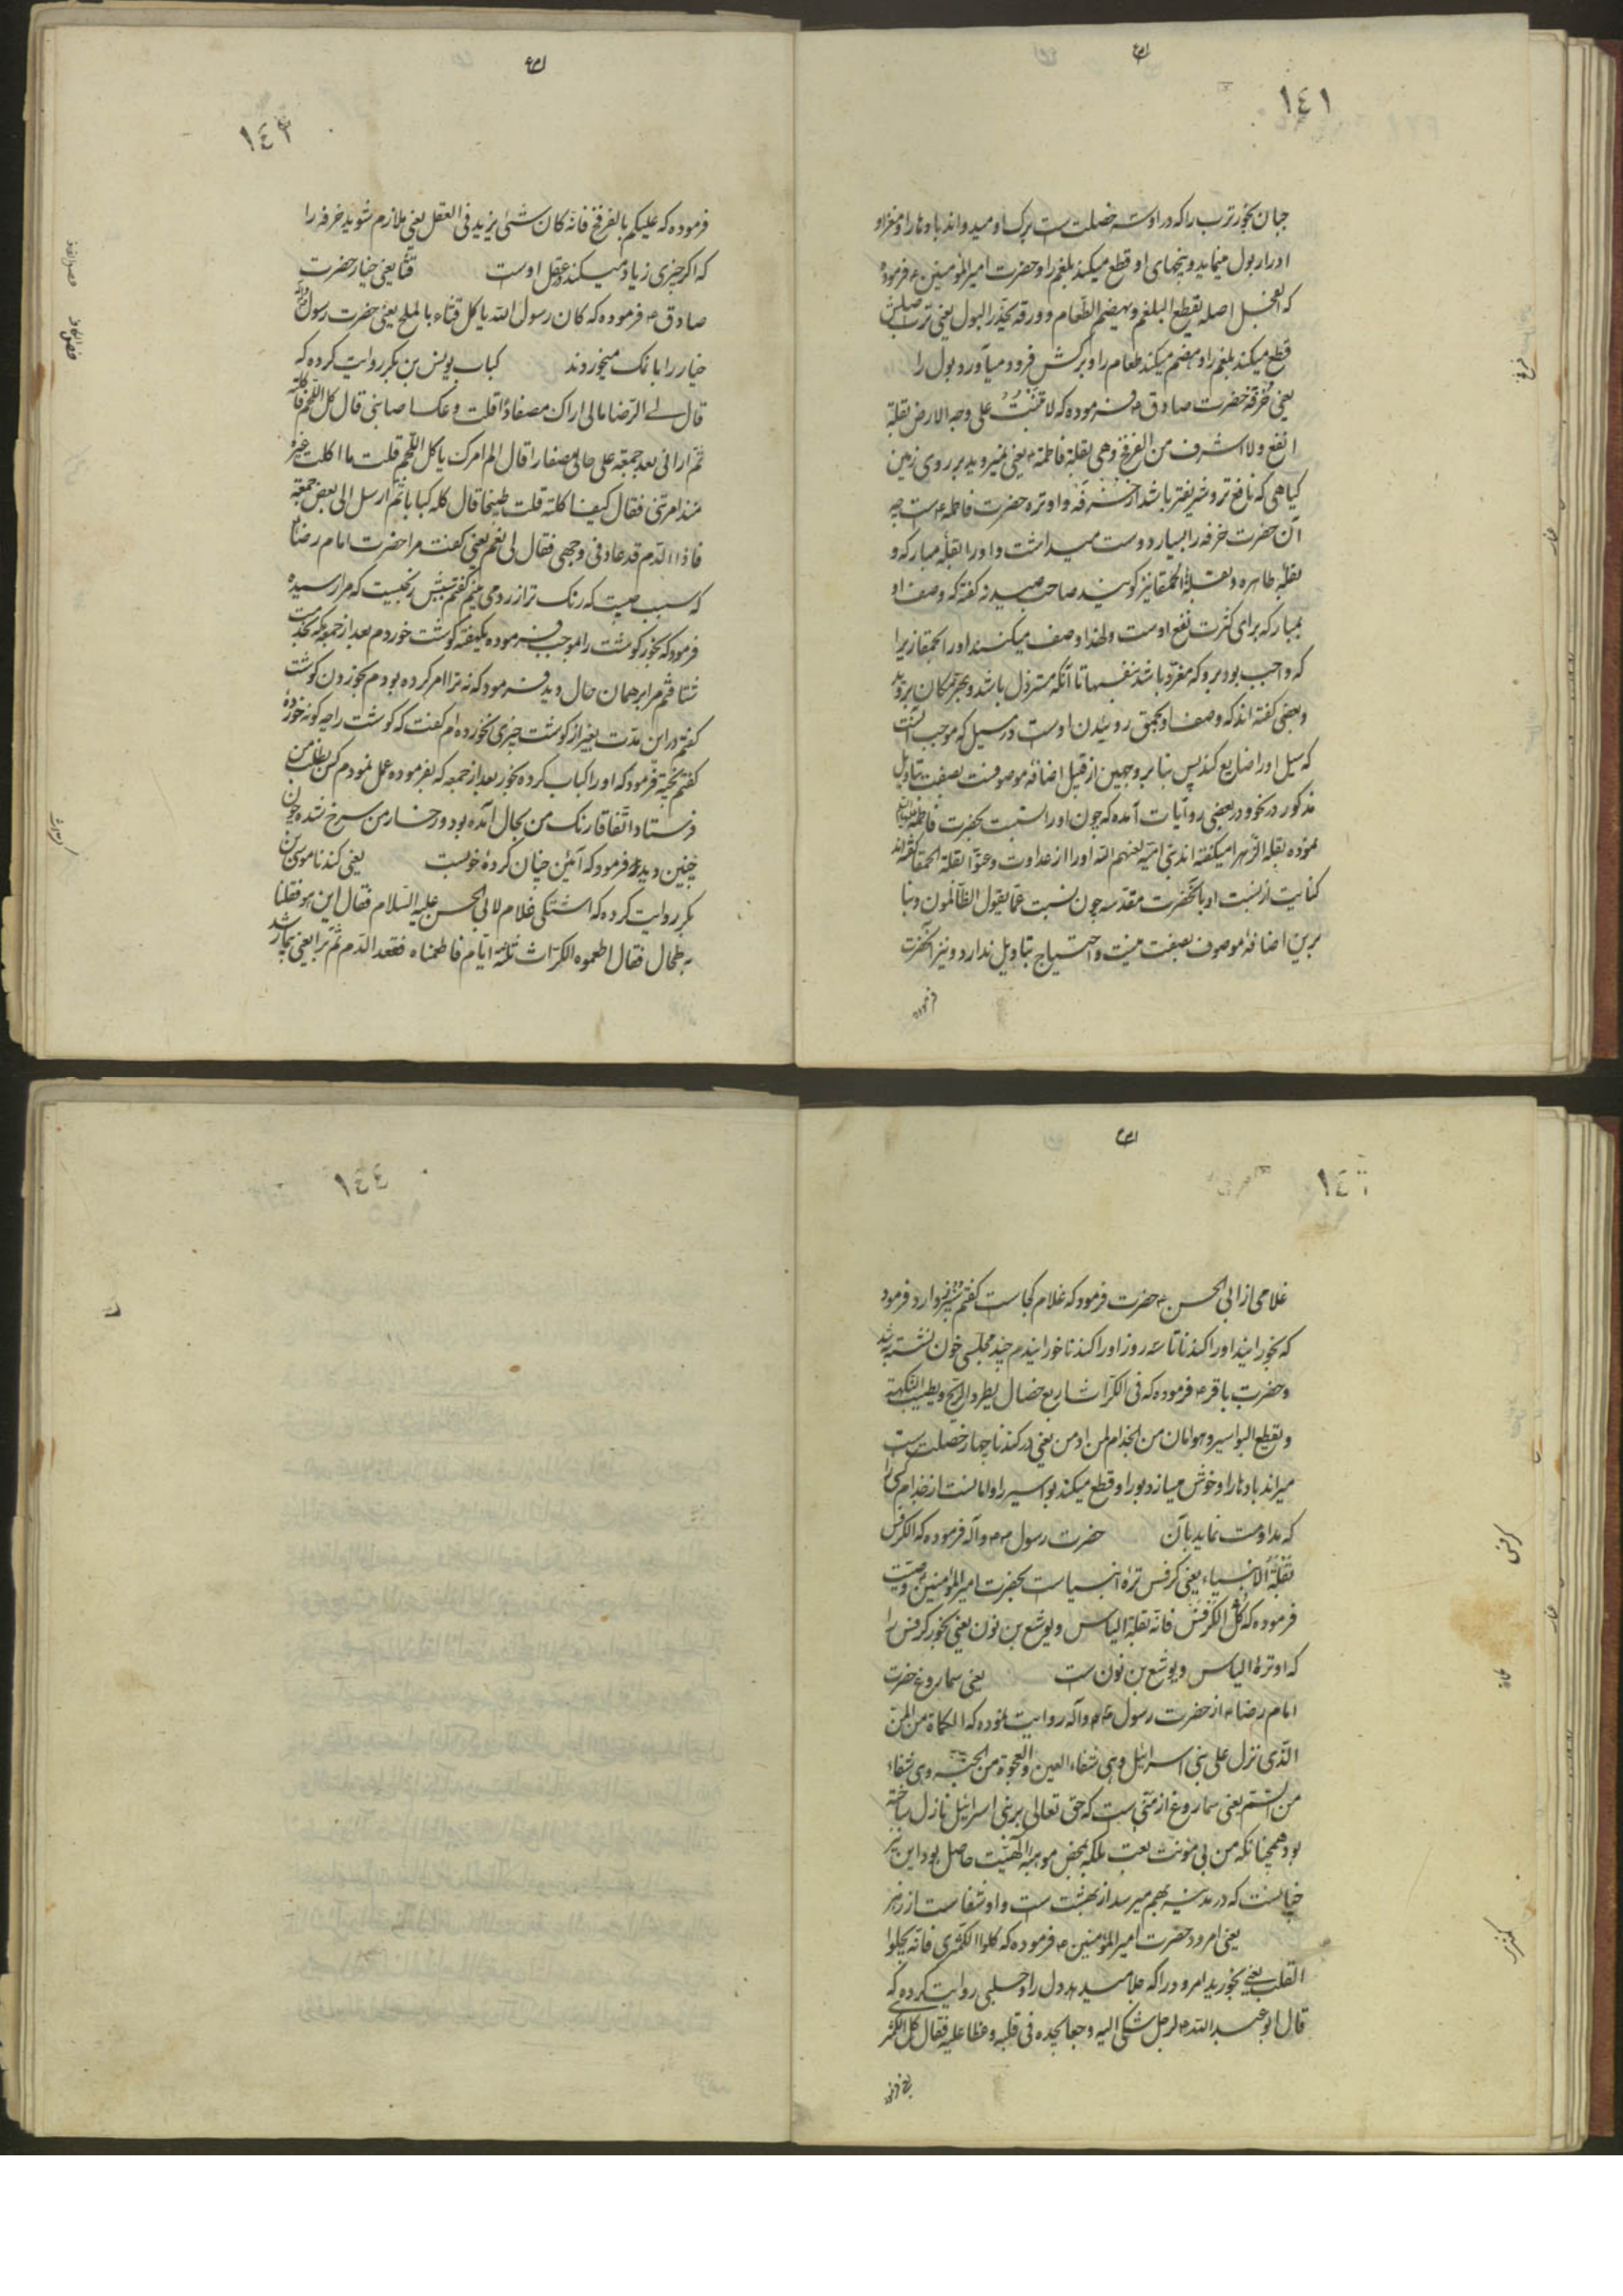 ١٤١
جنان بخور ترب را که در او سه خصلت است برک او میدواند بادها را و مغز او
ادرار بول مینماید و بیخهای او قطع میکند بلغم را و حضرت امیرالمومنین فرموده
که الفجل اصله یقطع البلغم و یهضم الطعام و ورقه یحدر البول یعنی ترب اصلش
قطع میکند بلغم را و هضم میکند طعام را و برکش فرود میآورد بول را
یعنی خرفه حضرت صادق فرموده که لا تنبت علی وجه الارض بقلة
انفع ولا اشرف من الفرفخ وهی بقلة فاطمة یعنی نمیروید بر روی زمین
کیاهی که نافع تر و شریفتر باشد از خرفه و او تره حضرت فاطمه است چه
آن حضرت خرفه را بسیار دوست میداشت و او را بقلۀ مبارکه و
بقلۀ طاهره و بقلة الحمقا نیز کویند صاحب صیدنه کفته که وصف او
بمبارکه برای کثرت نفع اوست ولهذا وصف میکنند او را بحمقا زیرا
که واجب بود برو که مغرد باشد بنفسها تا آنکه مسترذل باشد و بهر مکان بروید
و بعضی کفته اند که وصف او بحمق روئیدن اوست در سیل که موجب آنست
که سیل او را ضایع کند پس بنا بر وجهین از قبیل اضافه موصوفست بصفت بتاویل
مذکور در نحو و در بعضی روایات آمده که چون او را نسبت بحضرت فاطمه
نموده بقلة الزهرا میکفته اند بنی امیه لعنهم الله او را از عداوت و عتو بقلة الحمقا کفته اند
کنایت از نسبت او بآنحضرت مقدسه چون نسبت عما یقول الظالمون و بنا
برین اضافۀ موصوف بصفت نیست و احتیاج بتاویل ندارد و نیز آنحضرت
فرموده
١٤٢
فرموده که علیکم بالفرفخ فانه کان شئ یزید فی العقل یعنی ملازم شوید خرفه را
که اکر چیزی زیاد میکند عقل اوست قثا یعنی خیار حضرت
صادق فرموده که کان رسول الله یاکل قثاء بالملح یعنی حضرت رسول
خیار را با نمک میخوردند کباب یونس بن بکر روایت کرده که
قال لی الرضا مالی اراک مصفارا قلت وعک اصابنی قال کل اللحم فاکلته
ثم رانی بعد جمعة علی حالی مصفارا قال الم امرک باکل اللحم قلت ما اکلت غیره
منذ امرتنی فقال کیف اکلته قلت طبیخا قال کله کبابا ثم ارسل الی بعد جمعة
فاذا الدم قد عاد فی وجهی فقال لی نعم یعنی کفت مرا حضرت امام رضا
که سبب چیست که رنک ترا زرد می بینم کفتم تبش رنجیست که مرا رسیده
فرمود که بخور کوشت را بموجب فرموده یکهفته کوشت خوردم بعد از جمعه که بخدمت
شتافتم مرا بر همان حال دید فرمود که نه ترا امر کرده بودم بخوردن کوشت
کفتم در این مدت بغیر از کوشت چیزی نخورده ام کفت که کوشت را چه کونه خوردۀ
کفتم پخته فرمود که او را کباب کرده بخور بعد از جمعه که بفرموده عمل نمودم کس بطلب من
فرستاد اتفاقا رنک من بحال آمده بود و رخسار من سرخ شده چون
چنین دید فرمود که آئین چنان کردۀ خوبست یعنی کندنا موسی بن
بکر روایت کرده که اشتکی غلام لابی الحسن علیه السلام فقال این هو فقلنا
به طحال فقال اطعموه الکراث ثلثة ایام فاطعمناه فقعد الدم ثم برا یعنی بیمار شد
١٤٣
غلامی از ابی الحسن حضرت فرمود که غلام کجاست کفتم سپرز دارد فرمود
که بخورانید او را کندنا تا سه روز او را کندنا خورانیدم چند مجلس خون نشسته به شد
و حضرت باقر فرموده که فی الکراث اربع خصال یطرد الریح و یطیب النکهة
و یقطع البواسیر و هو امان من الجذام لمن ادمن یعنی در کندنا چهار خصلت است
میراند بادها را و خوش میسازد بو را و قطع میکند بواسیر را و امانست از جذام کسی را
که مداومت نماید بآن حضرت رسول و آله فرموده که الکرفس
بقلة الانبیاء یعنی کرفس ترۀ انبیاست بحضرت امیرالمومنین وصیت
فرموده که کل الکرفس فانه بقلة الیاس و یوشع بن نون یعنی بخور کرفس را
که او ترۀ الیاس و یوشع بن نون است یعنی سماروغ حضرت
امام رضا از حضرت رسول و آله روایت نموده که الکماة من المن
الذی نزل علی بنی اسرائیل وهی شفاء العین والعجوة من الجنة وهی شفاء
من السم یعنی سماروغ از منی است که حق تعالی بر بنی اسرائیل نازل ساخته
بود همچنانکه من بی مونت تعب بلکه بمحض موهبة الهیت حاصل بود این نیز
چنانست که در مدینه بهم میرسد از بهشت است و او شفاست از زهر
یعنی امرود حضرت امیرالمومنین فرموده که کلوا الکمثری فانه یجلوا
القلب یعنی بخورید امرود را که جلا میدهد دل را و حلبی روایت کرده که
قال ابو عبد الله لرجل شکی الیه وجعا یجده فی قلبه و غطا علیه فقال کل الکمثری
کرفس
کماة
کمثری
١٤٤